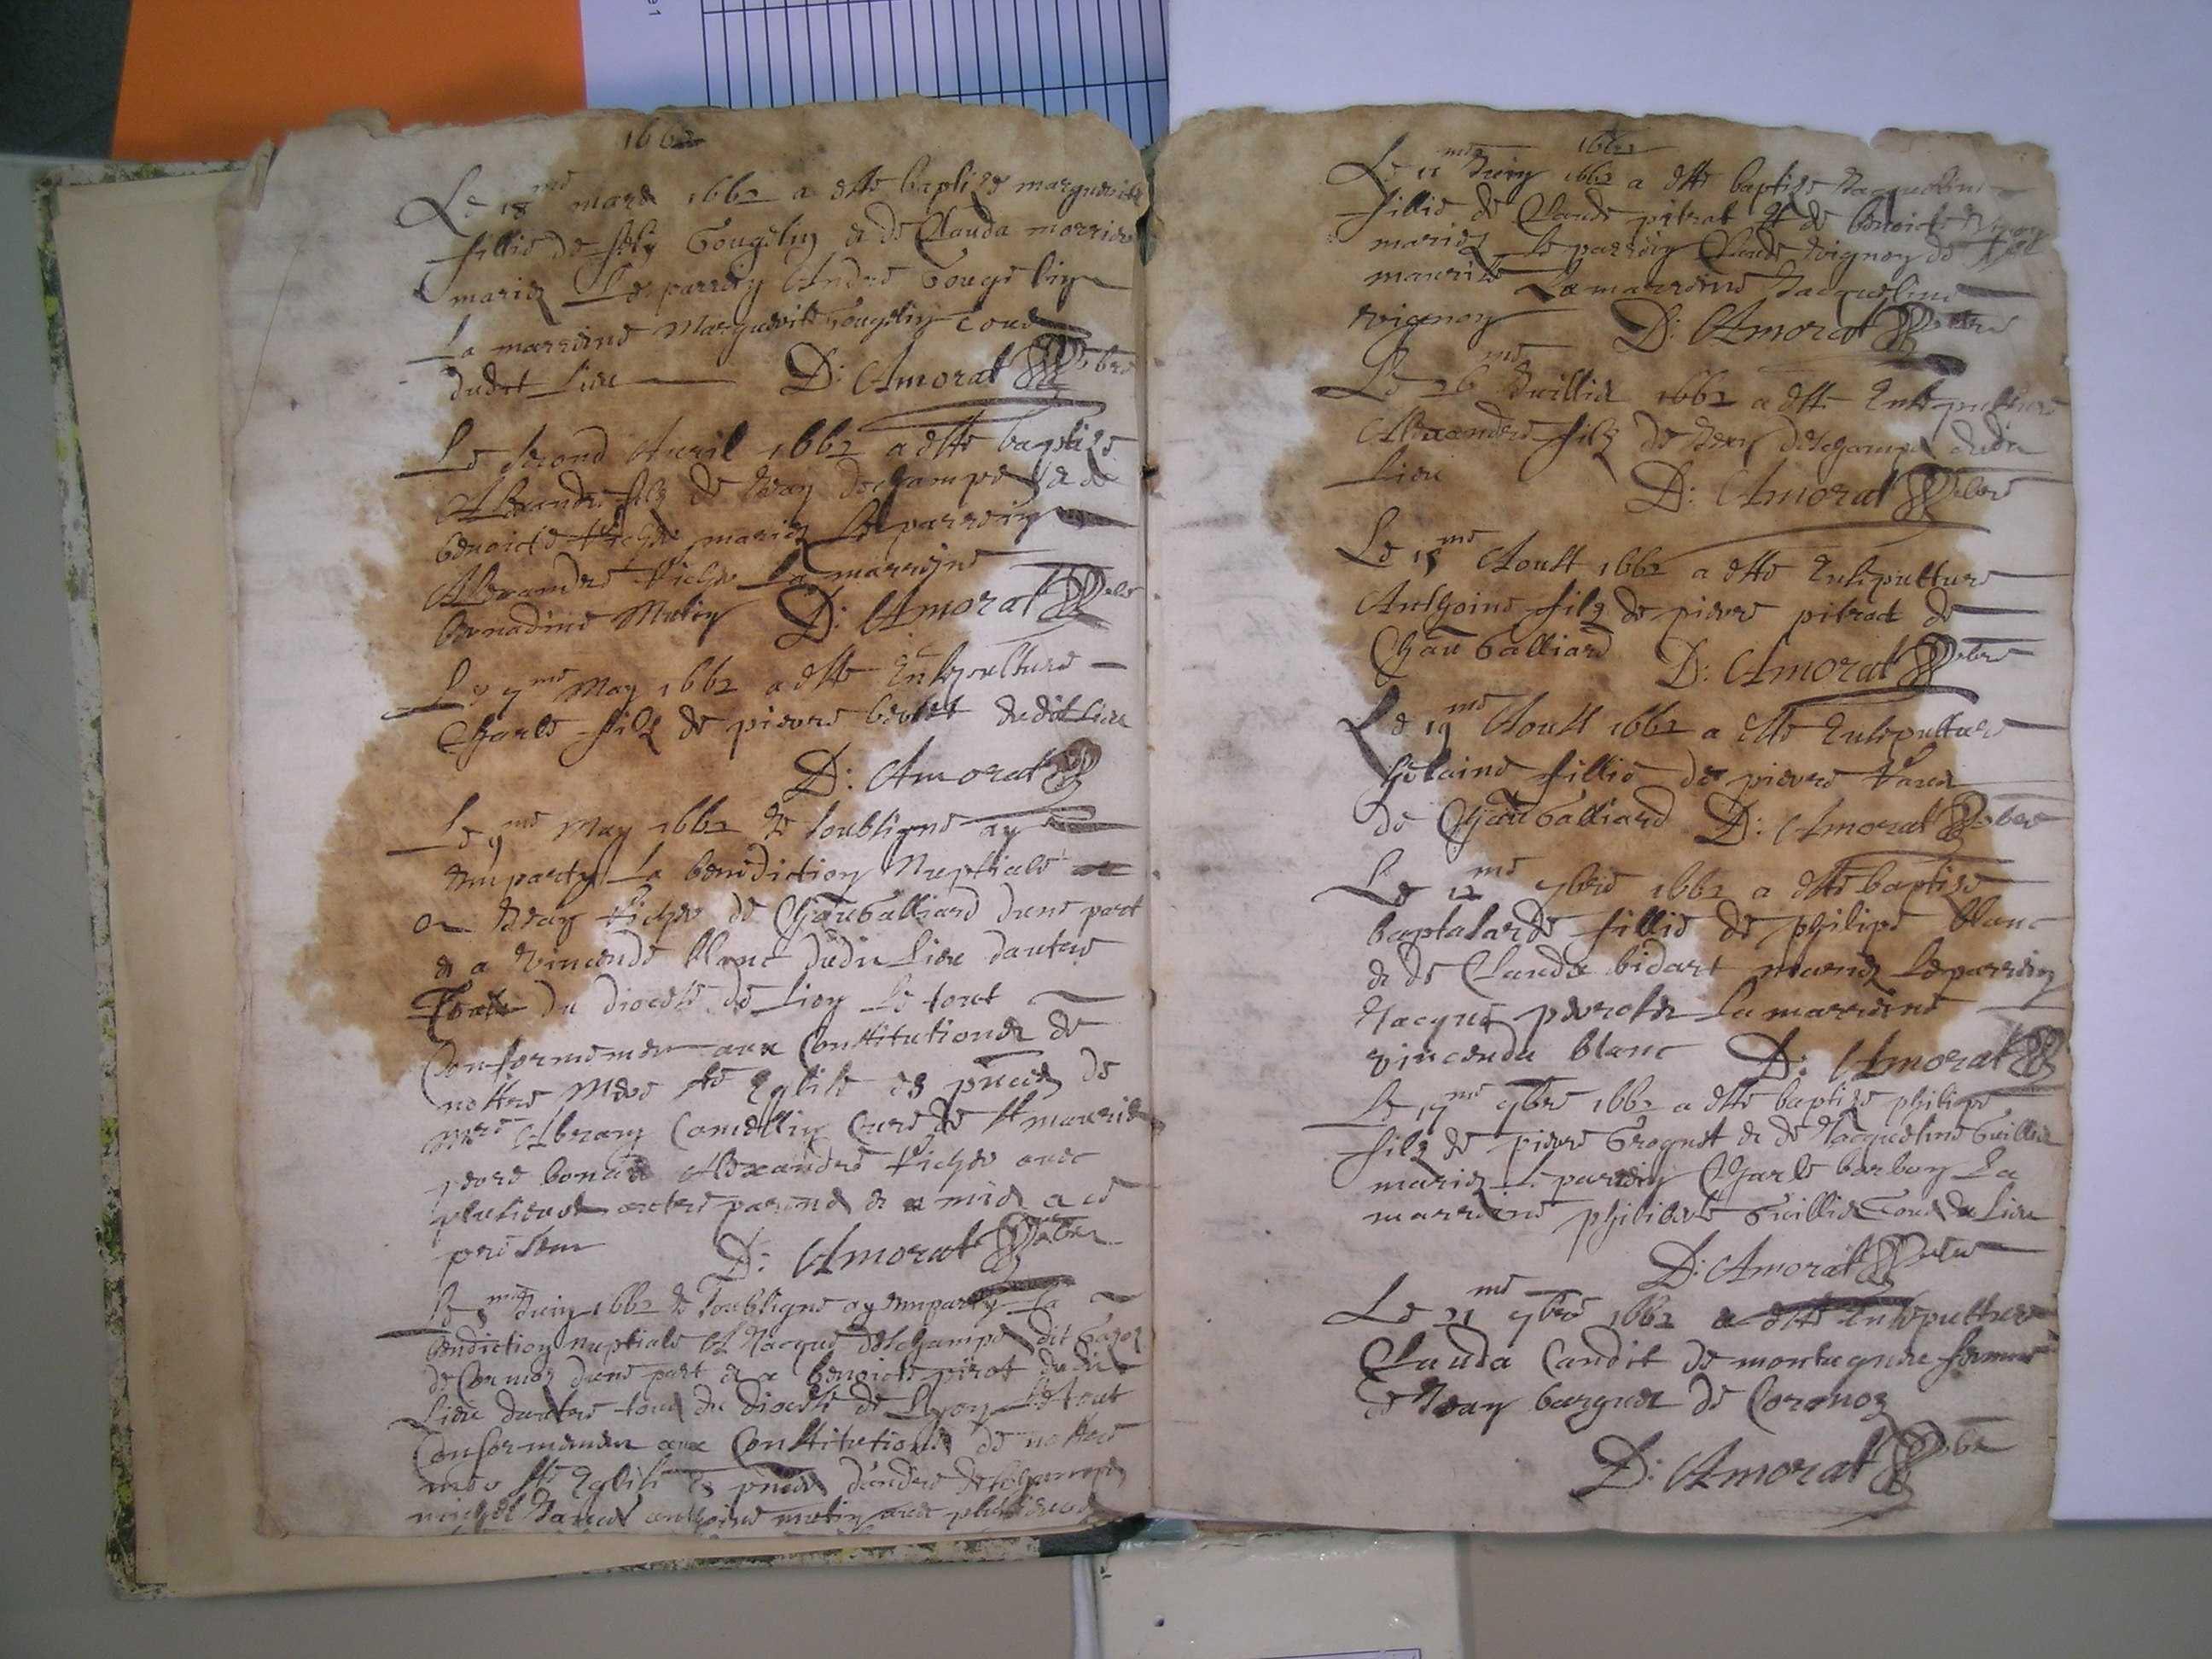 1662
Le 18me mars 1662 a este baptize marguerite
fillie de Gougelin et de Clauda morrier
mariez Le parrein Andre Gougelin
La marreine Marguerite Gougelin tous
dudit Lieu D: Amorat pbre
Le second Auril 1662 a este baptize
Alexandre filz de Jean deschamps et de
benoicte Vicher mariez Le parrein
Alexandre Vicher La marreine
D: Amorat pbre
Le 7me May 1662 a este Ensepulture
Charle filz de pierre dudit Lieu
D: Amorat
Le 9me May 1662 Je soubsigne ay
Imparty La benediction Nuptiale
a Jean Vicher de Chaugalliard dune part
et a Vincende blanc dudit Lieu dautre
Tous du diocese de Lion Le tout
Conformemen aux Constitutions de
nostre Mere ste Eglise es pnces de
Mre Cure de st mauris
Alexandre Vicher auec
plusieurs autre parens et amis a ce
presens D: Amorat pbre
Le 8me Juin 1662 Je soubsigne ay Imparty La
bendiction nuptiale a Jacque deschamps dit
de dune part et a benoicte pitrat dudit
Lieu dautre tous du diocese de Lyon Le tout
Conformemen aux Constitutions de nostre
mere ste Eglise es pnces dandre deschamps
michel anthoine auec plusieurs
1662
Le 11me Juin 1662 a este baptize Jacqueline
fillie de Claude pitrat et de benoicte Vignon
mariez Le parrein Claude Vignon de st
mauris La marreine Jacqueline
Vignon D: Amorat pbre
Le 26me Juillie 1662 a este Ensepulture
Alexandre filz de Jean deschamps dudit
Lieu D: Amorat pbre
Le 18me Aoust 1662 a este Ensepulture
Anthoine filz de pierre pitrat de
Chaugalliard D: Amorat pbre
Le 19me Aoust 1662 a este Ensepulture
fillie de pierre
de Chaugalliard D: Amorat pbre
Le 12me 7bre 1662 a este baptize
fillie de philipe blanc
et de Clauda bidart mariez Le parrein
Jacque La marreine
vincenda blanc D: Amorat
Le 17me 9bre 1662 a este baptize philipe
filz de piere Grognet et de Jacqueline Guillie
mariez Le parrein Charle barbon La
marreine philiberte Guillie tous du Lieu
D: Amorat pbre
Le 21me 9bre 1662 a este Ensepulture
Clauda Candit de montagnie femme
de Jean de
D: Amorat pbre